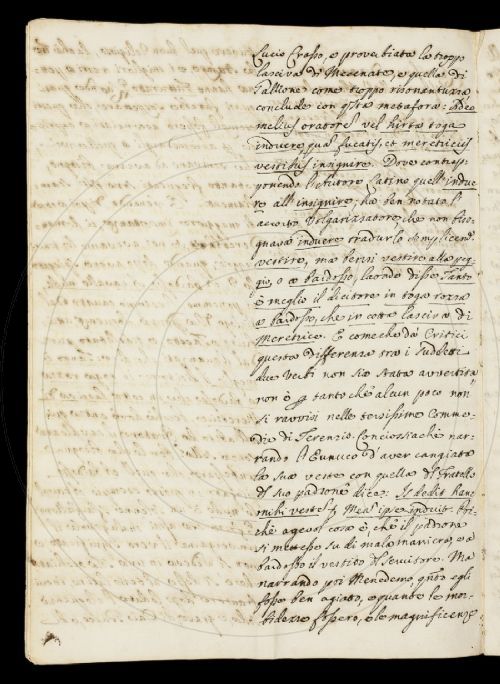 Lucio Crasso, e proverbiata la troppo
lasciva di Mecenate, e quella di
Gallione come troppo risonante
conclude con qsta metafora: Adeo
melius oratorē vel hirta toga
induere quã fucatis, et meretricijs
vestibus insignire. Dove contrap:
ponendo l'Autore Latino quell'indue
re all'insignire; ha ben notato l'
Volgarizzatore, che non biso:
gnava induere tradurlo
vestire, ma bensi vestire alla peg
gio, o a baidosso, laonde disse: Tanto
è meglio il dicitore in toga rozza
a baidosso, che in cotta lasciva di
Meretrice. E come che da' Critici
questa differenza tra i suddetti
due Verbi non sia stata avvertita
non è ꝑ tanto che alcun poco non
si ravvisi nelle tersissime Comme:
die di Terenzio. Conciossiachè nar:
rando l'Eunuco d'aver cangiata
la sua veste con quella dl Fratello
dl suo padrone dice: Is dedit hanc
mihi vestē ipse induit.
chè agevol cosa è, che il padrone
si mettesse su di mala maniera, o a
baidosso il vestito dl servitore. Ma
narrando poi Menedemo qñto egli
fosse ben agiato, e quante le mor:
bidezze fossero, e le magnificenze